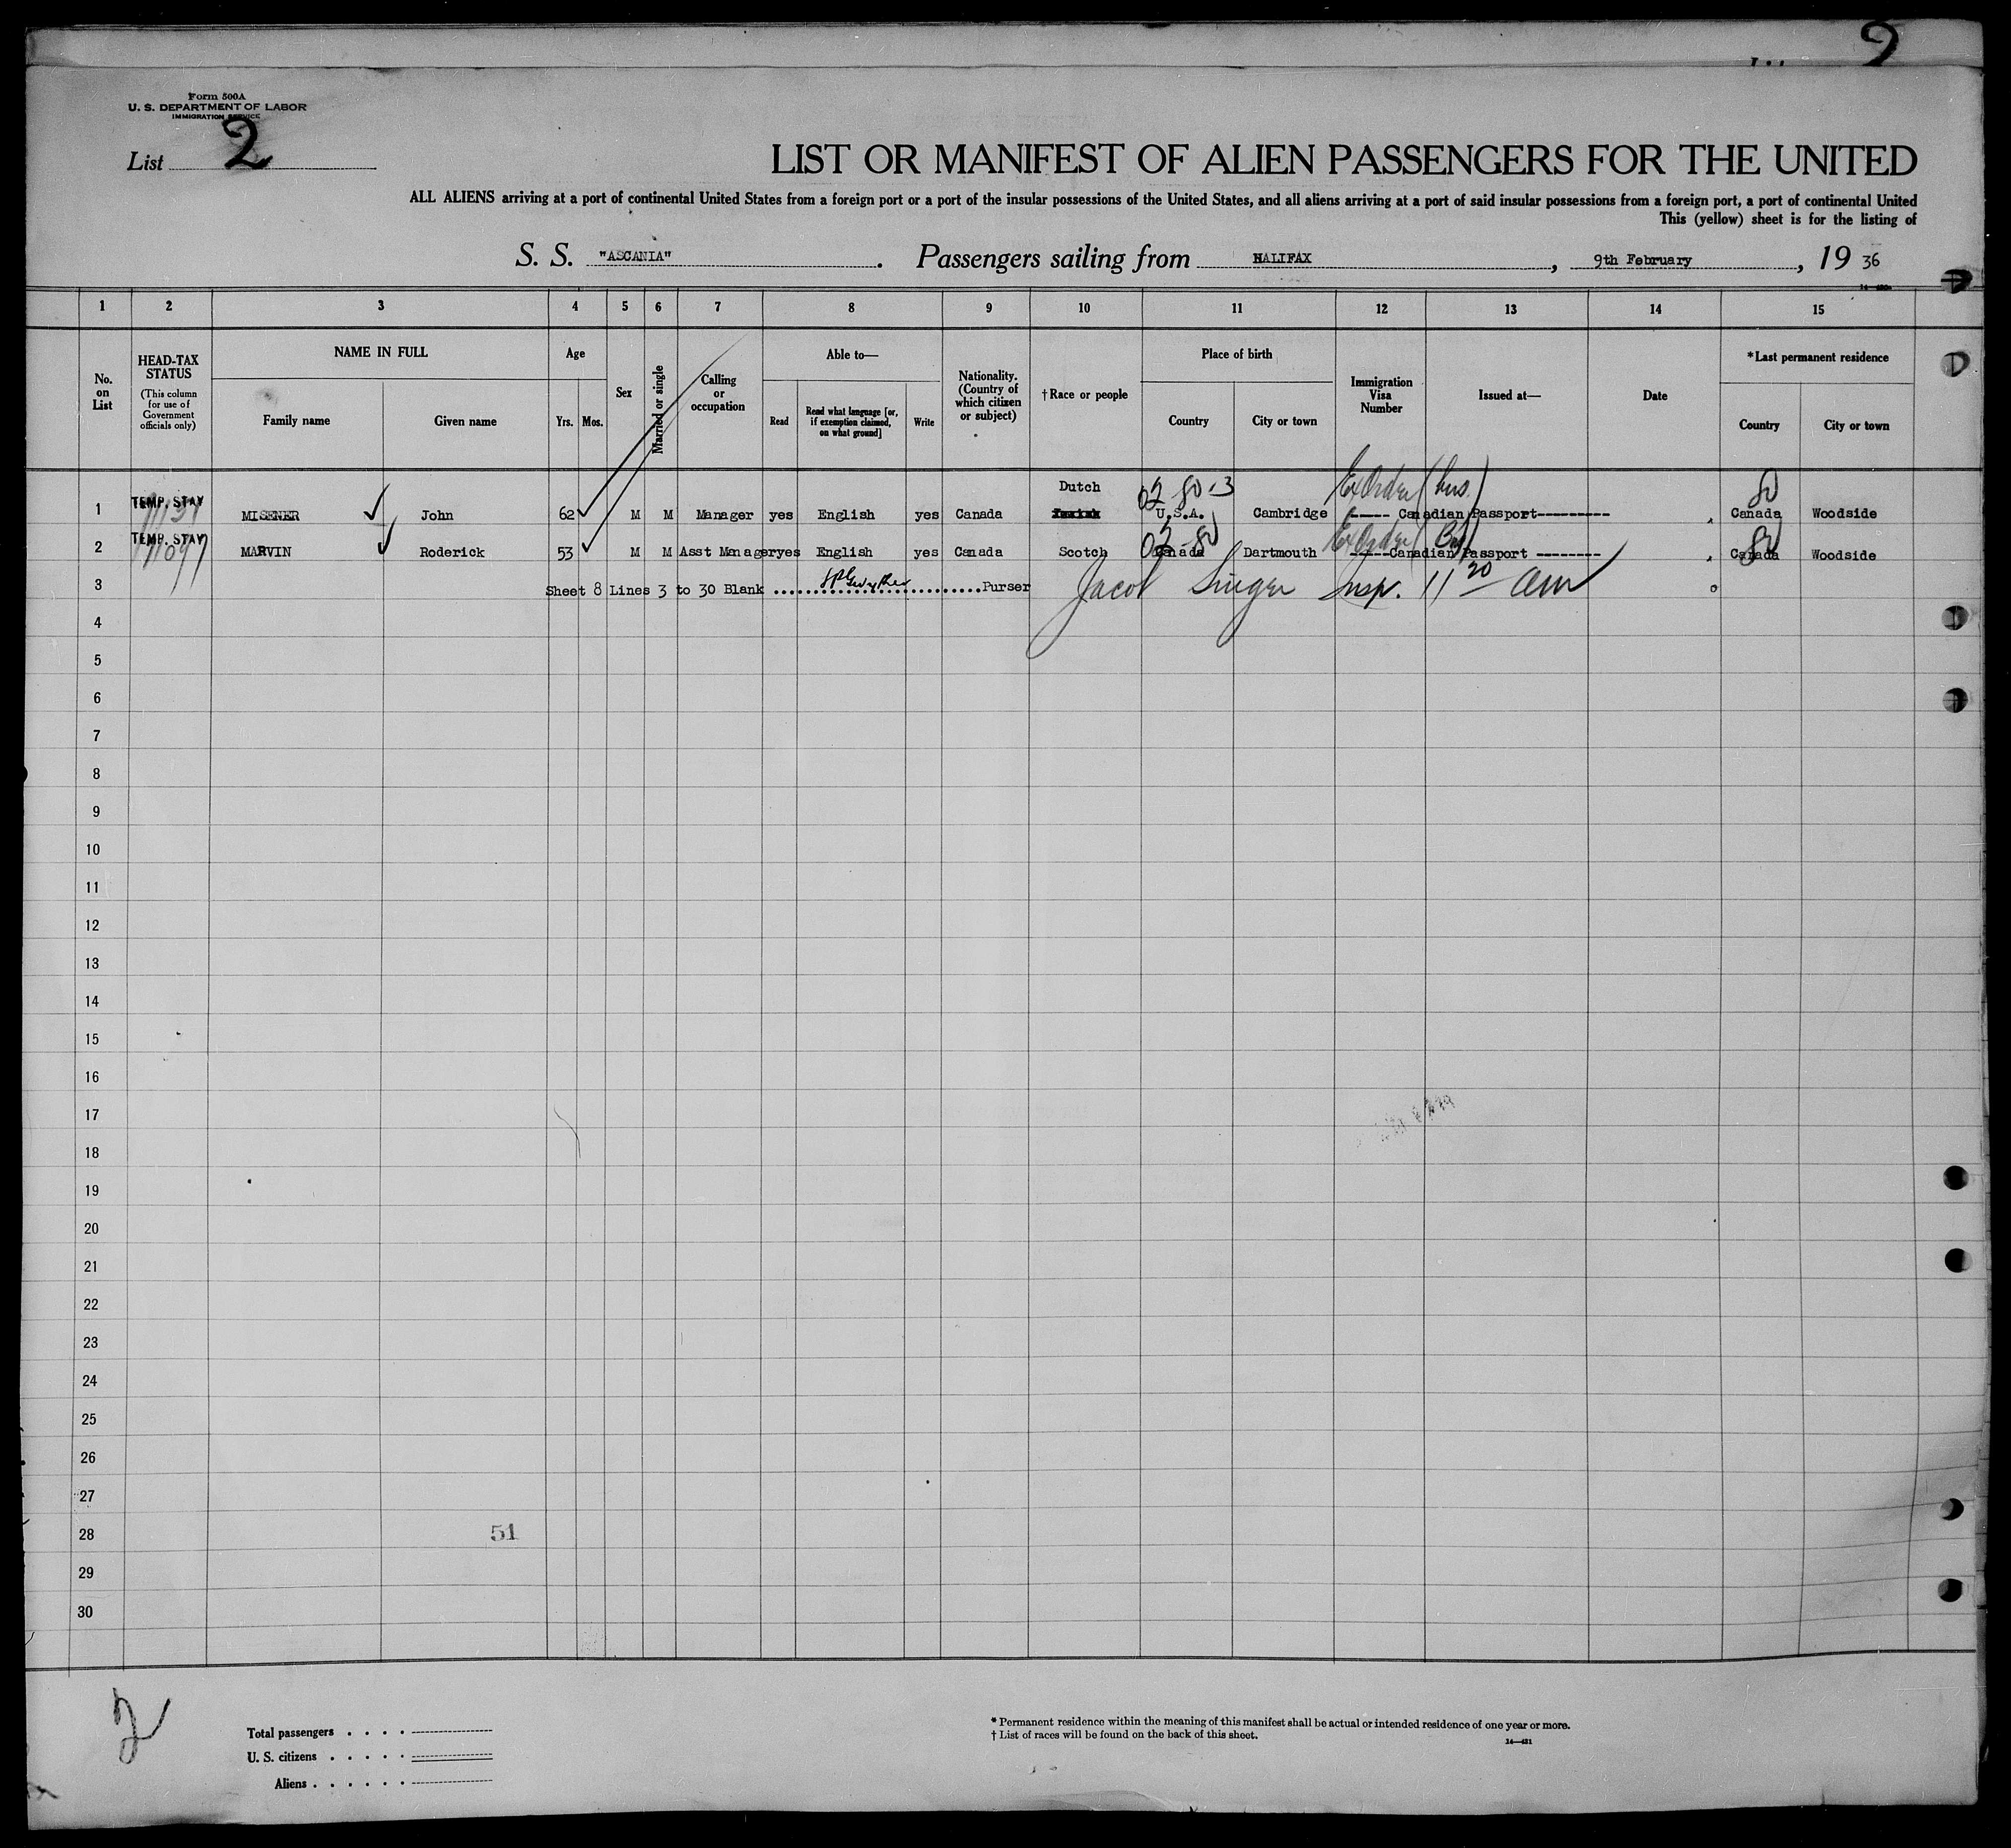 9
Form 500A
U. S. DEPARTMENT OF LABOR
IMMIGRATION SERVICE
List 2
LIST OR MANIFEST OF ALIEN PASSENGERS FOR THE UNITED
ALL ALIENS arriving at a port of continental United States from a foreign port or a port of the insular possessions of the United States, and all aliens arriving at a port of said insular possessions from a foreign port, a port of continental United
This (yellow) sheet is for the listing of
S. S. "ASCANIA". Passengers sailing from HALIFAX, 9th February, 19 36
1 2 3 4 5 6 7 8 9 10 11 12 13 14 15
No. on List
HEAD-TAX STATUS
(This column for use of Government officials only)
NAME IN FULL
Family name Given name
Age
Yrs. Mos.
Sex
Married or single
Calling or occupation
Able to—
Read Read what language [or, if exemption claimed, on what ground] Write
Nationality. (Country of which citizen or subject)
†Race or people
Place of birth
Country City or town
Immigration Visa Number
Issued at—
Date
*Last permanent residence
Country City or town
Dutch 02 80-3 ExOrder (bus) 80
1 TEMP. STAY MISENER John 62 M M Manager yes English yes Canada U.S.A. Cambridge ----- Canadian Passport--------- Canada Woodside
2 TEMP. STAY MARVIN Roderick 53 M M Asst Manager yes English yes Canada Scotch Canada Dartmouth -----Canadian Passport -------- Canada Woodside
3 Sheet 8 Lines 3 to 30 Blank ..............................Purser Jacob Singer Insp. 11 20 am
4
5
6
7
8
9
10
11
12
13
14
15
16
17
18
19
20
21
22
23
24
25
26
27
28 51
29
30
2
Total passengers . . . .
U. S. citizens . . . . .
Aliens . . . . . .
* Permanent residence within the meaning of this manifest shall be actual or intended residence of one year or more.
† List of races will be found on the back of this sheet.
14—421